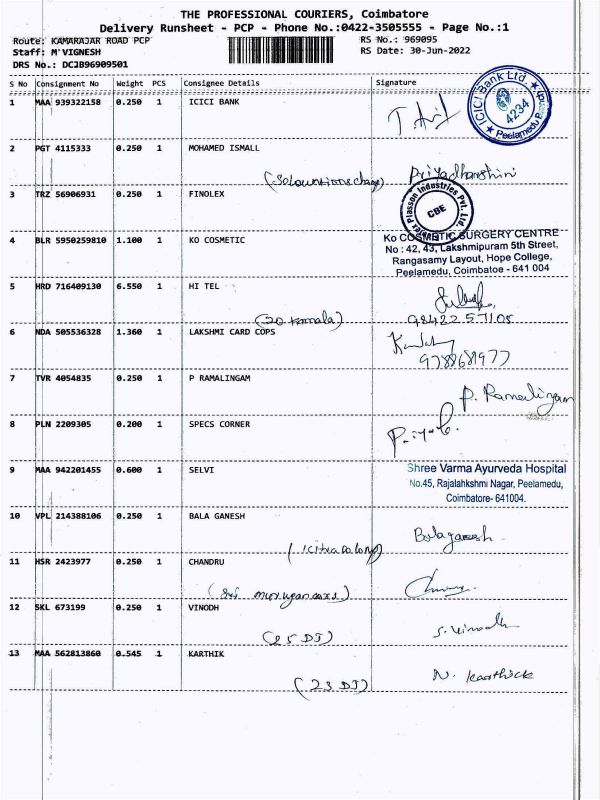 THE PROFESSIONAL COURIERS, Coimbatore
Delivery Runsheet - PCP - Phone No.:0422-3505555 - Page No.:1
Route: KAMARAJAR ROAD PCP
RS No.: 969095
Staff: M'VIGNESH
RS Date: 30-Jun-2022
DRS No.: DCJB96909501
S No Consignment No Weight PCS Consignee Details Signature
1 MAA 939322158 0.250 1 ICICI BANK
ICICI Bank Ltd.
4234
Peelamedu
2 PGT 4115333 0.250 1 MOHAMED ISMALL
Priyadharshini
3 TRZ 56906931 0.250 1 FINOLEX
Plasson Industries Pvt. Ltd.
CBE
4 BLR 5950259810 1.100 1 KO COSMETIC
Ko COSMETIC SURGERY CENTRE
No : 42, 43, Lakshmipuram 5th Street,
Rangasamy Layout, Hope College,
Peelamedu, Coimbatoe - 641 004
5 HRD 716409130 6.550 1 HI TEL
98422 57108
6 NDA 505536328 1.360 1 LAKSHMI CARD COPS
9788681977
7 TVR 4054835 0.250 1 P RAMALINGAM
P. Ramalingam
8 PLN 2209305 0.200 1 SPECS CORNER
9 MAA 942201455 0.600 1 SELVI
Shree Varma Ayurveda Hospital
No.45, Rajalahkshmi Nagar, Peelamedu,
Coimbatore- 641004.
10 VPL 214388106 0.250 1 BALA GANESH
Balaganesh
11 HSR 2423977 0.250 1 CHANDRU
12 SKL 673199 0.250 1 VINODH
S. Vinodh
(25 DJ)
13 MAA 562813860 0.545 1 KARTHIK
N. Karthick
(23 DJ)